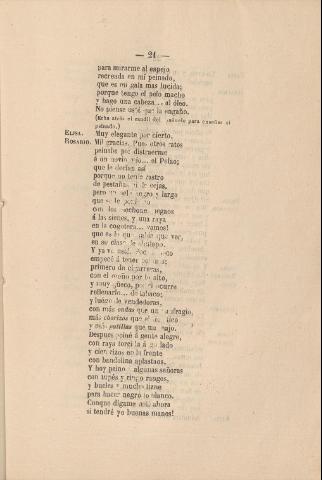 — 21 —
para mirarme al espejo
recreada en mi peinado,
que es mi gala mas lucida;
porque tengo el pelo macho
y hago una cabeza... al óleo.
No piense usté que la engaño.
(Echa atrás el mantil del pañuelo para enseñar el
peinado.)
ELISA. Muy elegante por cierto.
ROSARIO. Mil gracias. Pues otros ratos
peinaba por distraerme
á un novio mio... el Pelao;
que le decian así
porque no tenie rastro
de pestañas ni de cejas,
pero un pelo negro y largo
que se lo
con los mechones
á las sienes, y una raya
en la cogotera... vamos!
que es lo que habia que ver,
en su clase de chulapo.
Y ya ve usté. Poco á poco
empecé á tener
primero de cigarreras,
con el moño por lo alto,
y muy güeco, por si ocurre
rellenarlo... de tabaco;
y luego de vendedoras,
con más ondas que un naufragio,
más chorizos que el
y más patillas que un majo.
Despues peiné á gente alegre,
con raya torcida á un lado
y cien rizos en la frente
con bandolina aplastaos.
Y hoy peino á algunas señoras
con tupés y cinco rangos,
y bucles y muchos lizos
para hacer negro lo blanco.
Conque dígame usté ahora
si tendré yo buenas manos!